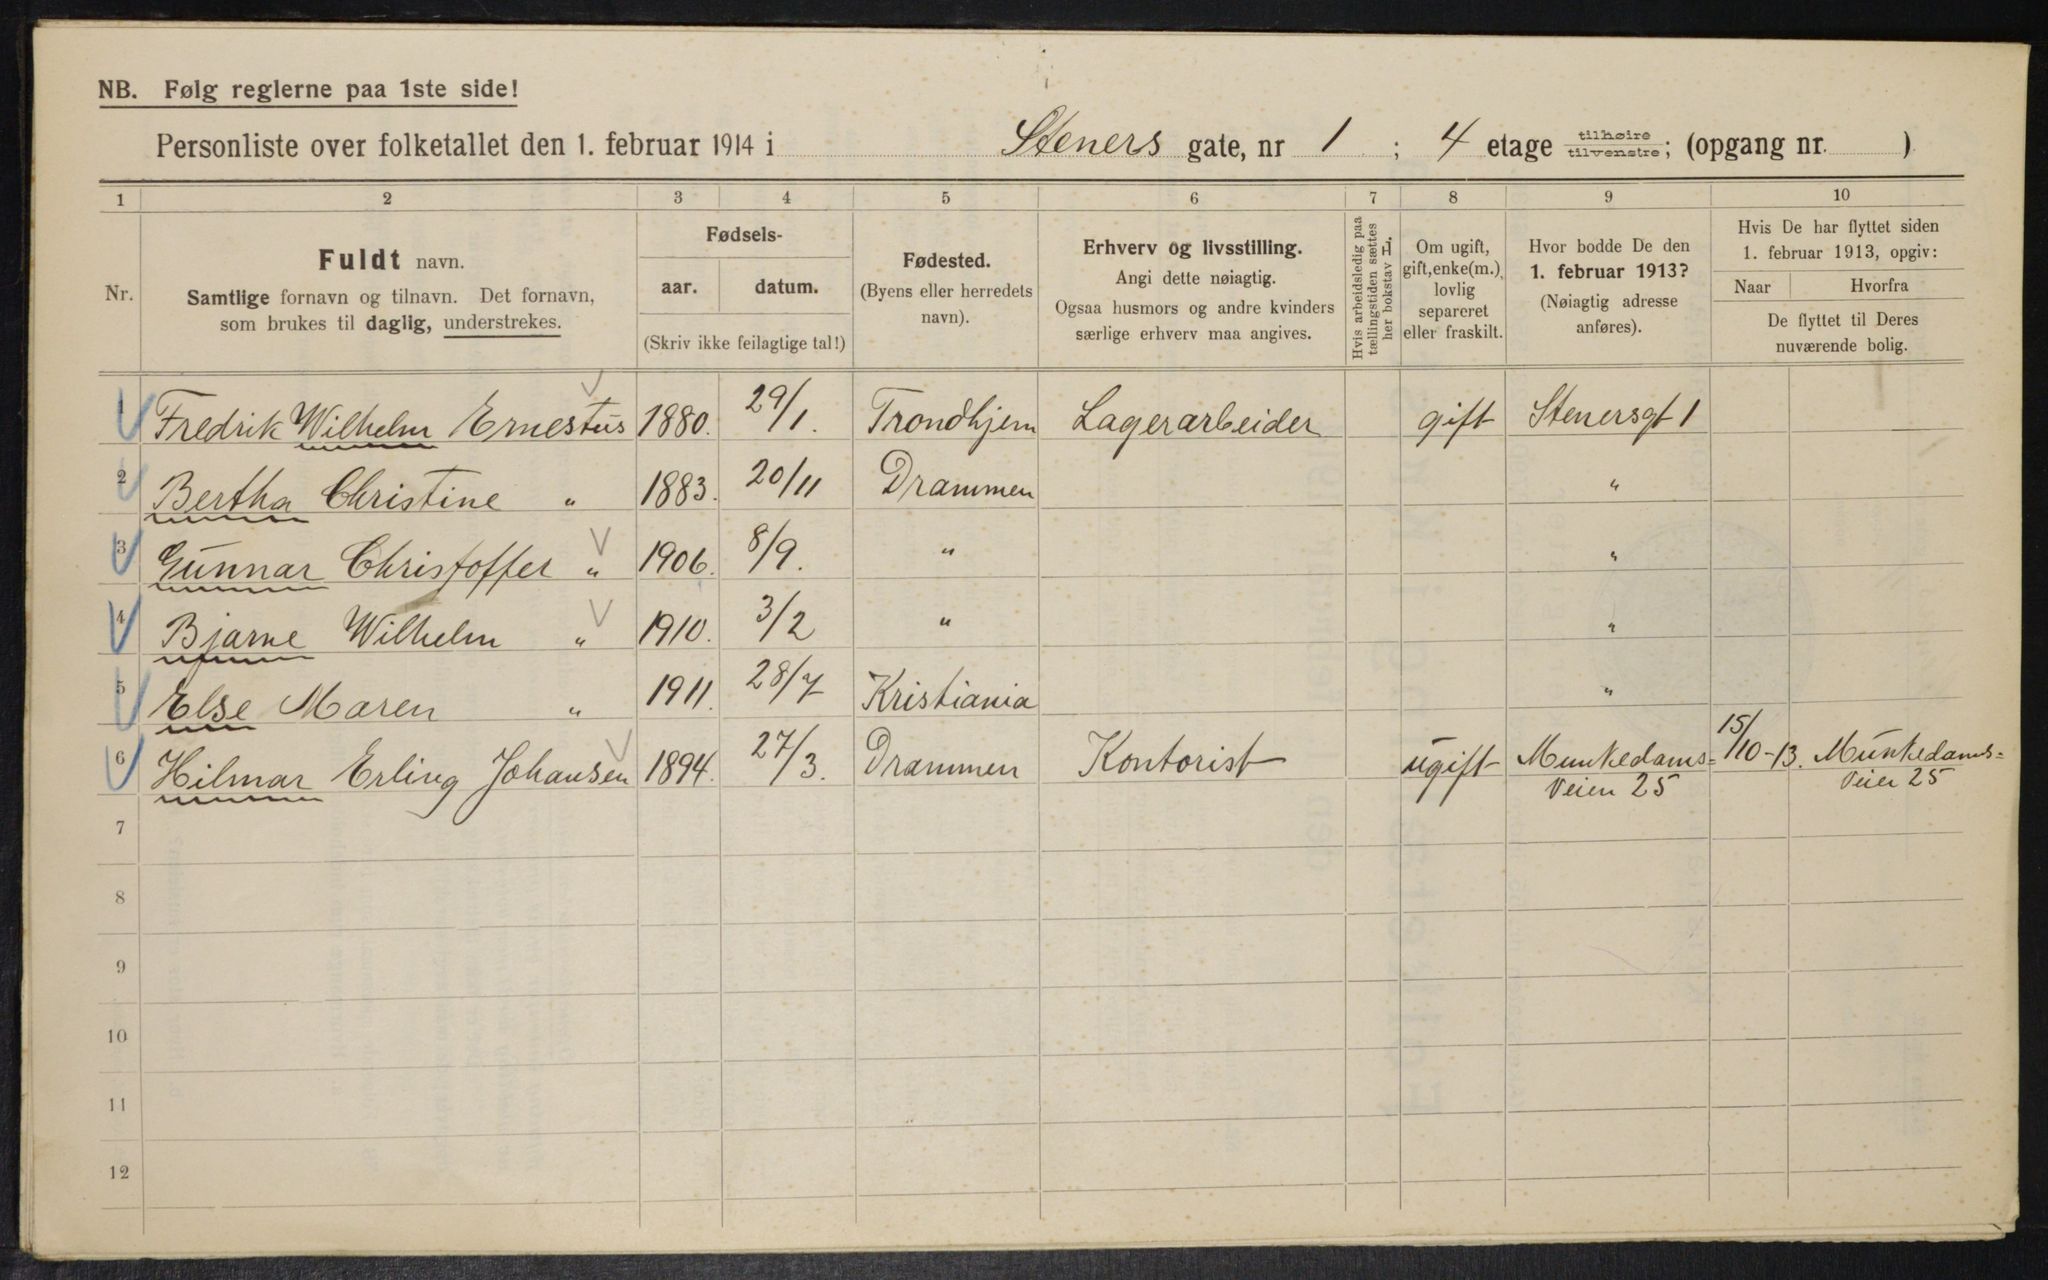 NB. Følg reglerne paa 1ste side!
Personliste over folketallet den 1. februar 1914 i Steners gate, nr 1 ; 4 etage tilhøire/tilvenstre; (opgang nr. )
1 2 3 4 5 6 7 8 9 10
Nr.
Fuldt navn.
Samtlige fornavn og tilnavn. Det fornavn,
som brukes til daglig, understrekes.
Fødsels-
aar. datum.
(Skriv ikke feilagtige tal!)
Fødested.
(Byens eller herredets
navn).
Erhverv og livsstilling.
Angi dette nøiagtig.
Ogsaa husmors og andre kvinders
særlige erhverv maa angives.
Hvis arbeidsledig paa
tællingstiden sættes
her bokstav L.
Om ugift,
gift, enke(m.),
lovlig
separeret
eller fraskilt.
Hvor bodde De den
1. februar 1913?
(Nøiagtig adresse
anføres).
Hvis De har flyttet siden
1. februar 1913, opgiv:
Naar Hvorfra
De flyttet til Deres
nuværende bolig.
1 Fredrik Wilhelm Ernestus 1880. 29/1. Trondhjem Lagerarbeider gift Stenersgt 1
2 Bertha Christine " 1883. 20/11 Drammen "
3 Gunnar Christoffer " 1906. 8/9. " "
4 Bjarne Wilhelm " 1910. 3/2 " "
5 Else Maren " 1911. 28/7 Kristiania "
6 Hilmar Erling Johansen 1894. 27/3. Drammen Kontorist ugift Munkedams= 15/10-13. Munkedams=
Veien 25 Veien 25
7
8
9
10
11
12